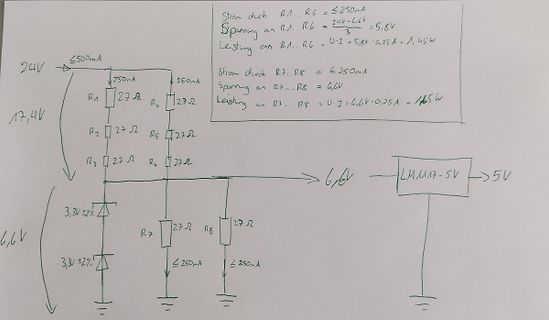 Strom durch R1...R6 = ≤250mA
Spannung an R1...R6 = 24V-6,6V / 3 = 5,8V
Leistung an R1...R6 = U·I = 5,8V·0,25A = 1,45W
Strom durch R7...R8 = ≤250mA
Spannung an R7...R8 = 6,6V
Leistung an R7...R8 = U·I = 6,6V·0,25A = 1,65W
24V
≤500mA
250mA
250mA
17,4V
R1 27Ω
R4 27Ω
R2 27Ω
R5 27Ω
R3 27Ω
R6 27Ω
6,6V
LM1117-5V
5V
6,6V
3,3V ±2%
R7 27Ω
R8 27Ω
3,3V ±2%
≤250mA
≤250mA